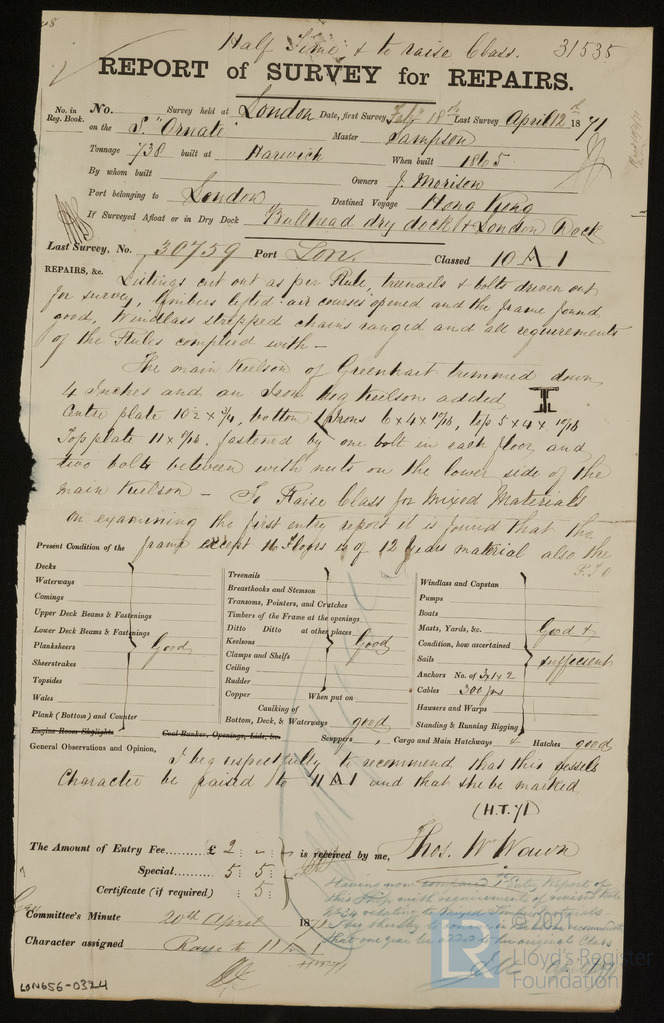 Half Time & to raise Class. 31535
REPORT of SURVEY for REPAIRS.
No. in Reg. Book. No. Survey held at London Date, first Survey Feby 18th Last Survey April 12th 1871
on the S. "Ornate" Master Sampson
Tonnage 738 built at Harwich When built 1865
By whom built Owners J. Morison
Port belonging to London Destined Voyage Hong Kong
If Surveyed Afloat or in Dry Dock Bullhead dry dock & London Dock
Last Survey, No. 30759 Port Lon. Classed 10 A 1
REPAIRS, &c. Listings cut out as per Rule, treenails & bolts driven out
for survey, timbers tested air courses opened and the frame found
good, Windlass stripped chains ranged and all requirements
of the Rules complied with -
The main Keelson of Greenhart trimmed down
4 Inches and an Iron Keelson added
Centre plate 10½ x ¾, bottom 6 x 4 x top 5 x 4 x
Top plate 11 x fastened by one bolt in each floor, and
two bolts between with nuts on the lower side of the
main Keelson - To Raise Class for Mixed Materials
On examining the first entry report it is found that the
frame except 16 Floors is of 12 Years material also the
P.T.O
Present Condition of the
Decks
Waterways
Comings
Upper Deck Beams & Fastenings
Lower Deck Beams & Fastenings
Planksheers Good
Sheerstrakes
Topsides
Wales
Plank (Bottom) and Counter
Engine Room Skylights Coal Bunker, Openings, Lids, &c.
Treenails
Breasthooks and Stemson
Transoms, Pointers, and Crutches
Timbers of the Frame at the openings
Ditto Ditto at other places
Keelsons Good
Clamps and Shelfs
Ceiling
Rudder
Copper When put on
Caulking of
Bottom, Deck, & Waterways good
Windlass and Capstan
Pumps
Boats
Masts, Yards, &c. Good &
Condition, how ascertained
Sails sufficient
Anchors No. of 3 x 1 x 2
Cables 300 fms
Hawsers and Warps
Standing & Running Rigging
Scuppers Cargo and Main Hatchways & Hatches good
General Observations and Opinion,
I beg respectfully to recommend that this vessels
Character be raised to 11 A 1 and that she be marked
(H.T. 71)
The Amount of Entry Fee......... £ 2 : - : - is received by me, Thos. Wm Wawn
Special......... 5 : 5 :
Certificate (if required) : 5 :
Having now compared 1st Entry Report of
this Ship with requirements of revised Rule
relating to mixed materials
I beg thereby to recommend
that one year be added to her original Class
Committee's Minute 20th April 1871
Character assigned Raise to 11 A 1
HT 71
LON656-0324
© 2021
LR Lloyd's Register
Foundation